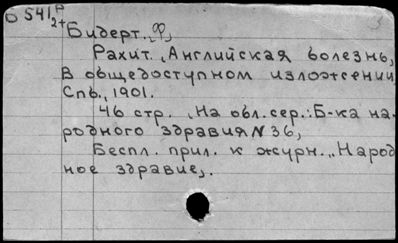 Б 541 Р
2+
Бидерт, Ф.
Рахит. „Английская болезнь,
в общедоступном изложении
Спб., 1901.
46 стр. „На обл. сер.: Б-ка на-
родного здравия N 36,
Беспл. прил. к журн. „Народ
ное здравие„.